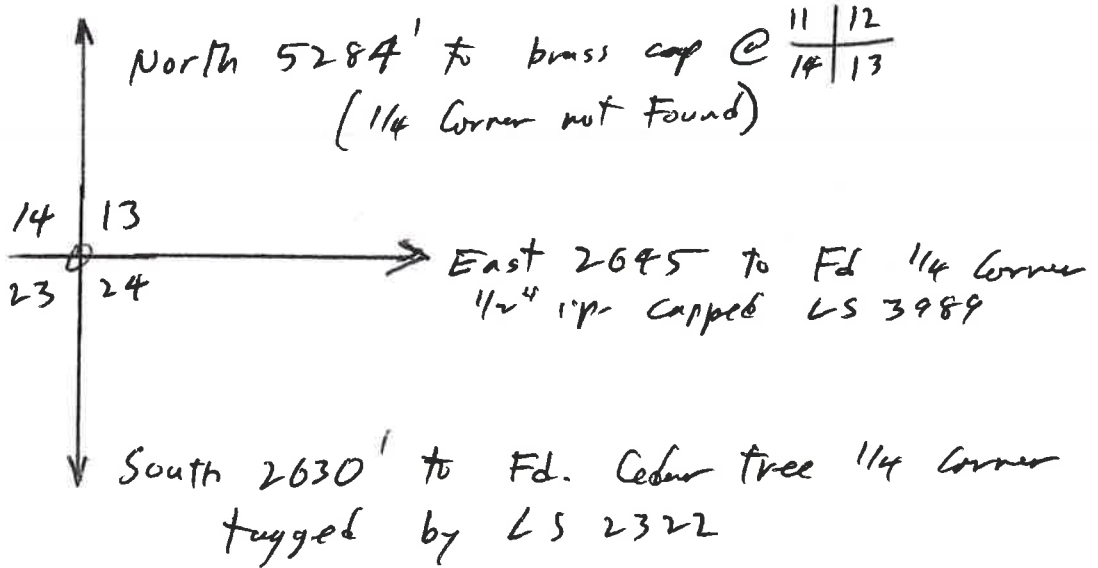 North 5284' to brass cap @ 11 | 12
14 | 13
(1/4 Corner not Found)
14 13
23 24
East 2645 to Fd 1/4 Corner
1/2" i.p. capped LS 3989
South 2630' to Fd. Cedar tree 1/4 corner
tagged by LS 2322